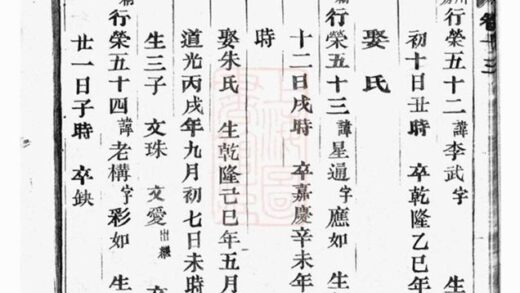 卷十三
行榮五十二 諱李武字
初十日丑時 卒乾隆乙巳年
娶氏
行榮五十三 諱星逼字應如 生
十二日戌時 卒嘉慶辛未年
時
娶朱氏 生乾隆己巳年五月
道光丙戌年九月初七日未時
生三子 文珠 文愛出繼
行榮五十四 諱老構字彩如 生
廿一日子時 卒鈌